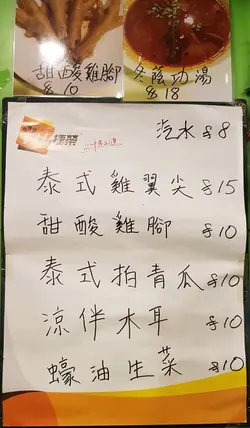 甜酸雞腳
$10
冬蔭功湯
$18
汽水 $8
泰式雞翼尖 $15
甜酸雞腳 $10
泰式拍青瓜 $10
涼伴木耳 $10
蠔油生菜 $10